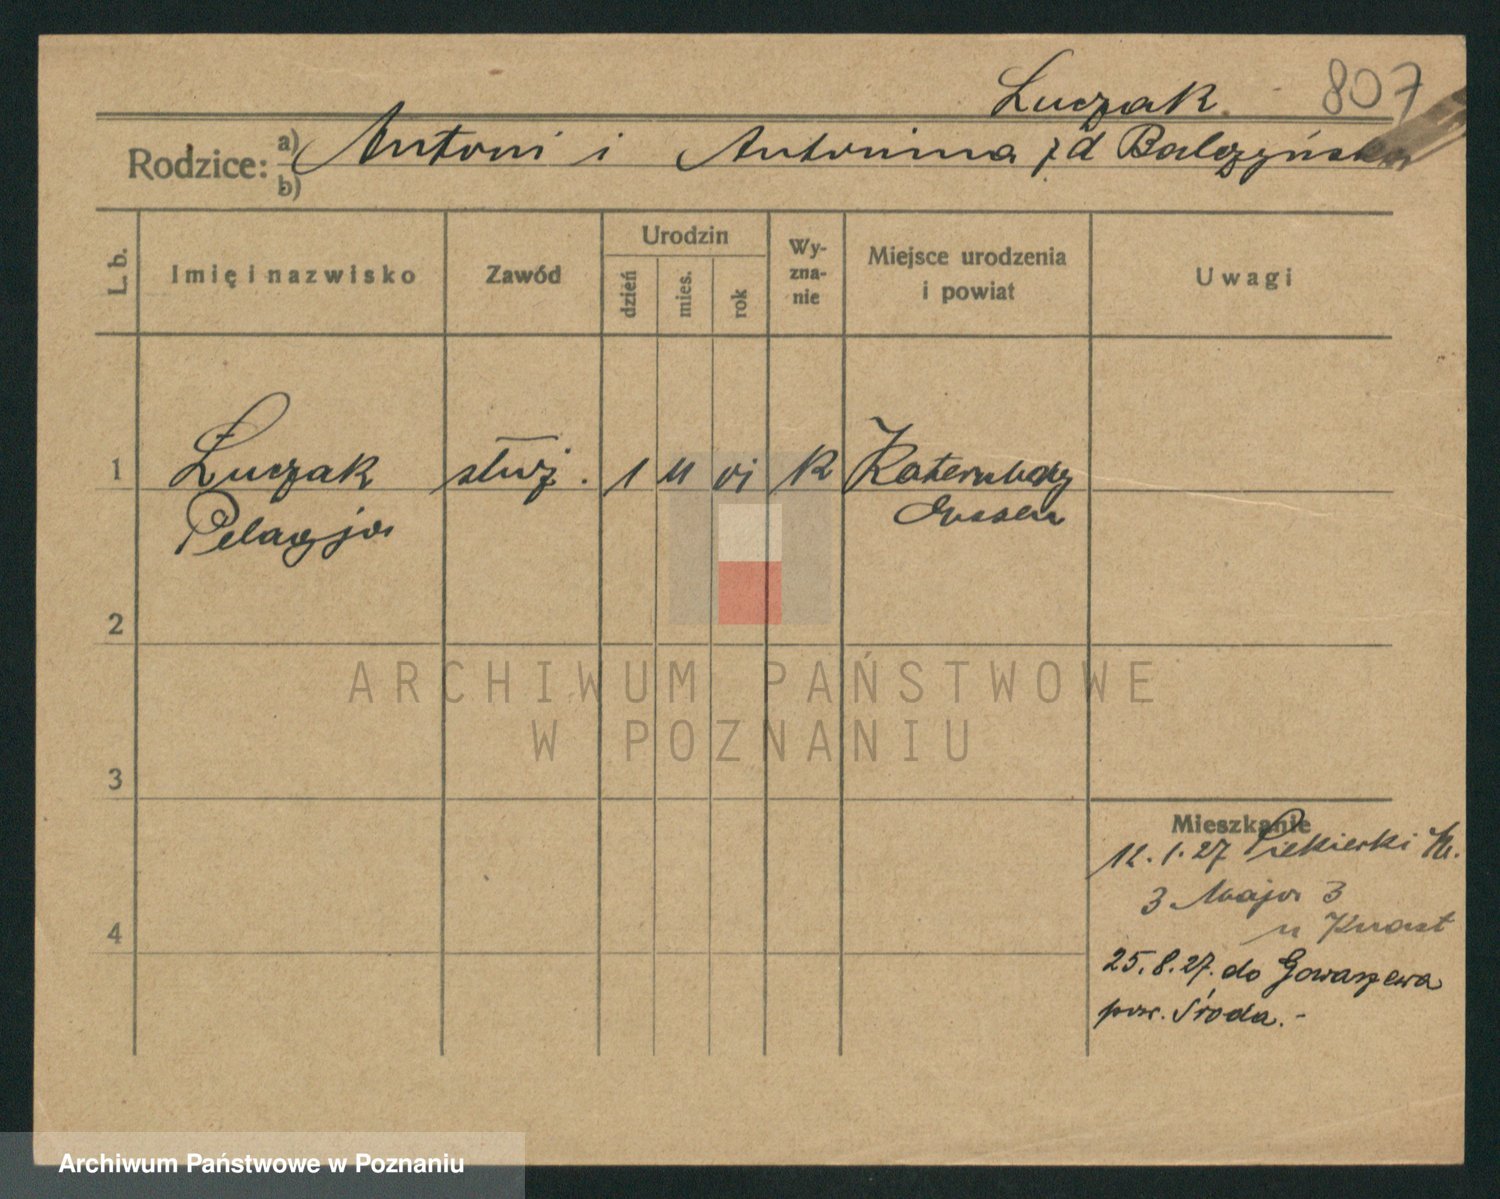 Łuczak. 807
Rodzice: a) Antoni i Antonina z d Balczyńska
b)
L. b. Imię i nazwisko Zawód Urodzin dzień mies. rok Wy-zna-nie Miejsce urodzenia i powiat Uwagi
1 Łuczak służ. 1 11 01 K
Pelagja Essen
2
3
4
Mieszkanie
12.1.27 Piekierki
3 Maja 3
u Knast
25.8.27. do Gowarzewa
pow. Środa.-
ARCHIWUM PAŃSTWOWE
W POZNANIU
Archiwum Państwowe w Poznaniu